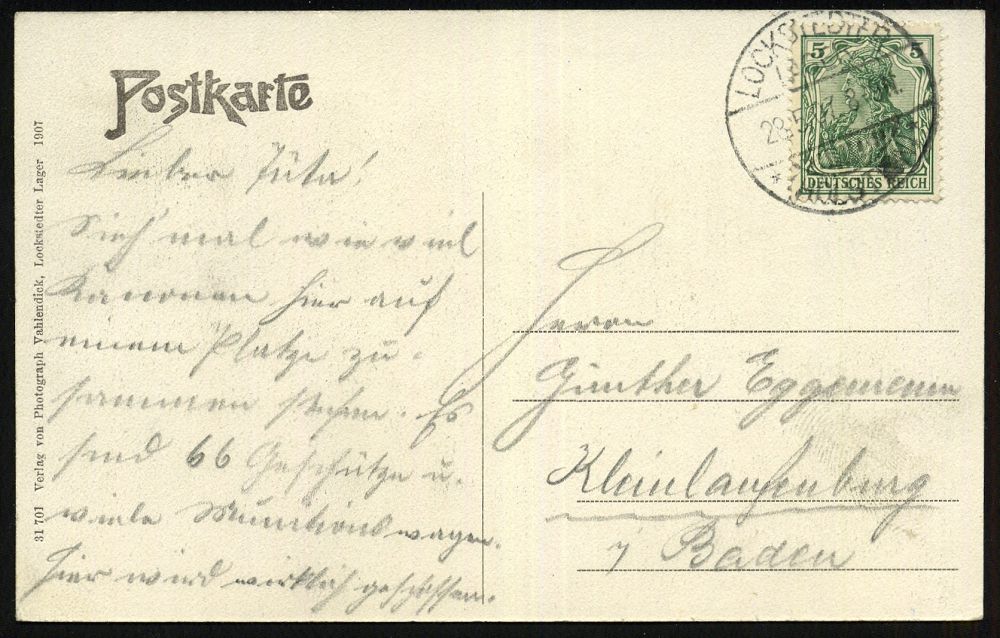 Postkarte
LOCKSTEDTER
5 5
DEUTSCHES REICH
31 701 Verlag von Photograph Vahlendick, Lockstedter Lager 1907
Lieber Jüta!
Sieh mal wie viel
Kanonen hier auf
einem Platze zu-
sammen stehen. Es
sind 66 Geschütze u.
viele Munitionswagen.
Hier wird wirklich geschossen.
Herrn
Günther Eggemann
Kleinlaufenburg
i/ Baden